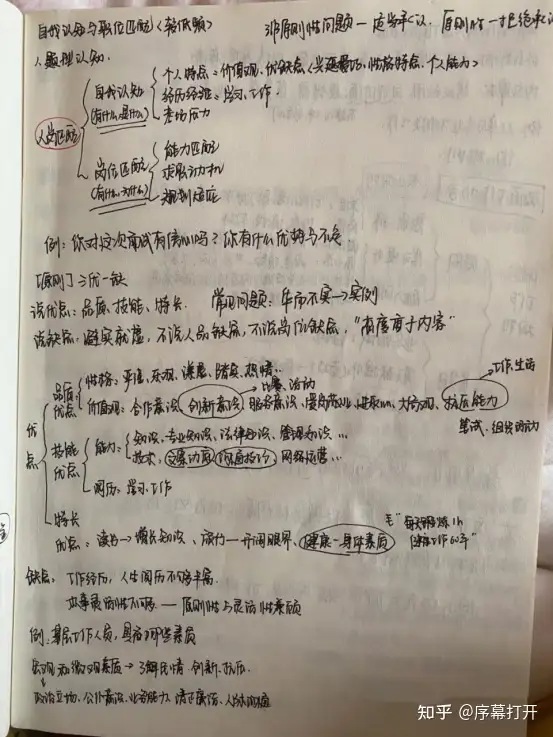 自我认知与职位匹配<较低频>
非原则性问题—应当承认. 原则性—拒绝承认
1.题型认知.
人岗匹配
自我认知
(有什么是什么)
个人特点：价值观,优缺点,兴趣爱好,性格特点,个人能力>
经历经验：学习、工作.
考场应力
岗位匹配
(有什么为什么)
能力匹配
求职动机
规划适应
例：你对这次面试有信心吗？你有什么优势与不足
[原则] 三优一缺
说优点：品质、技能、特长. 常见问题：华而不实→实例
说缺点：避实就虚,不说人品缺点,不说岗位缺点,"态度重于内容"
→工作、生活
优点
品质优点
性格：平温、乐观、谦虚、踏实、热情..
→比赛、活动
价值观：合作意识、创新意识、服务意识、爱岗敬业、进取心、大局观、抗压能力
笔试、组织活动
技能优点
能力：知识、专业知识、法律知识、管理知识 ...
技术：网络运营...
阅历：学习、工作
特长优点：读书→增长知识、旅行—开阔眼界、健康—身体素质
毛"每天锻炼1h
健康工作60年"
缺点： 工作经历,人生阅历不够丰富.
办事灵活性不够 — 原则性与灵活性兼顾
例：基层工作人员,具备哪些素质
宏观和微观素质→了解民情.创新.抗压.
政治立场、公仆意识、业务能力、清正廉洁、人际沟通
知乎 @序幕打开